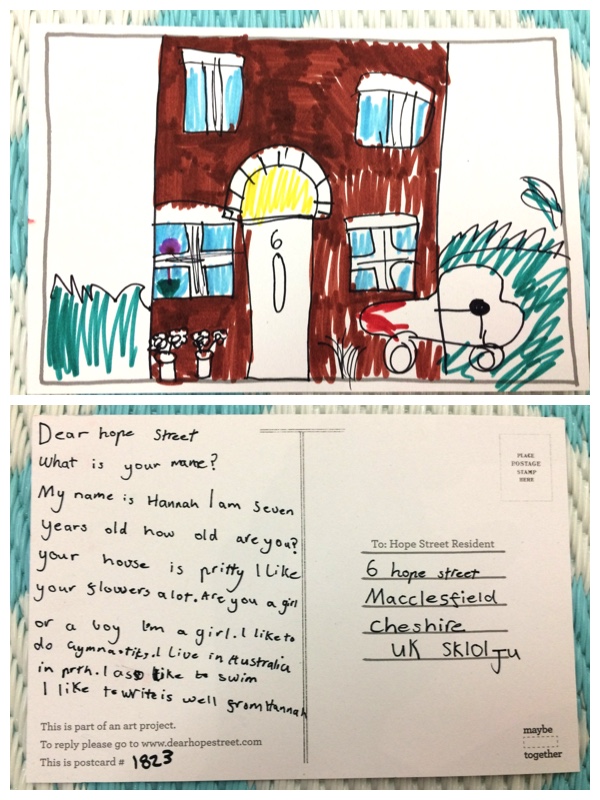 6
Dear hope Street
What is your name?
My name is Hannah I am seven
years old how old are you?
your house is pritty I Like
your flowers a lot. Are you a girl
or a boy I'm a girl. I like to
do Gymnastiks. I Live in Australia
in prth. I aso like to swim
I like to write is well from Hannah
This is part of an art project.
To reply please go to www.dearhopestreet.com
This is postcard # 1823
PLACE
POSTAGE
STAMP
HERE
To: Hope Street Resident
6 hope street
Macclesfield
Cheshire
UK SK101JU
maybe
together